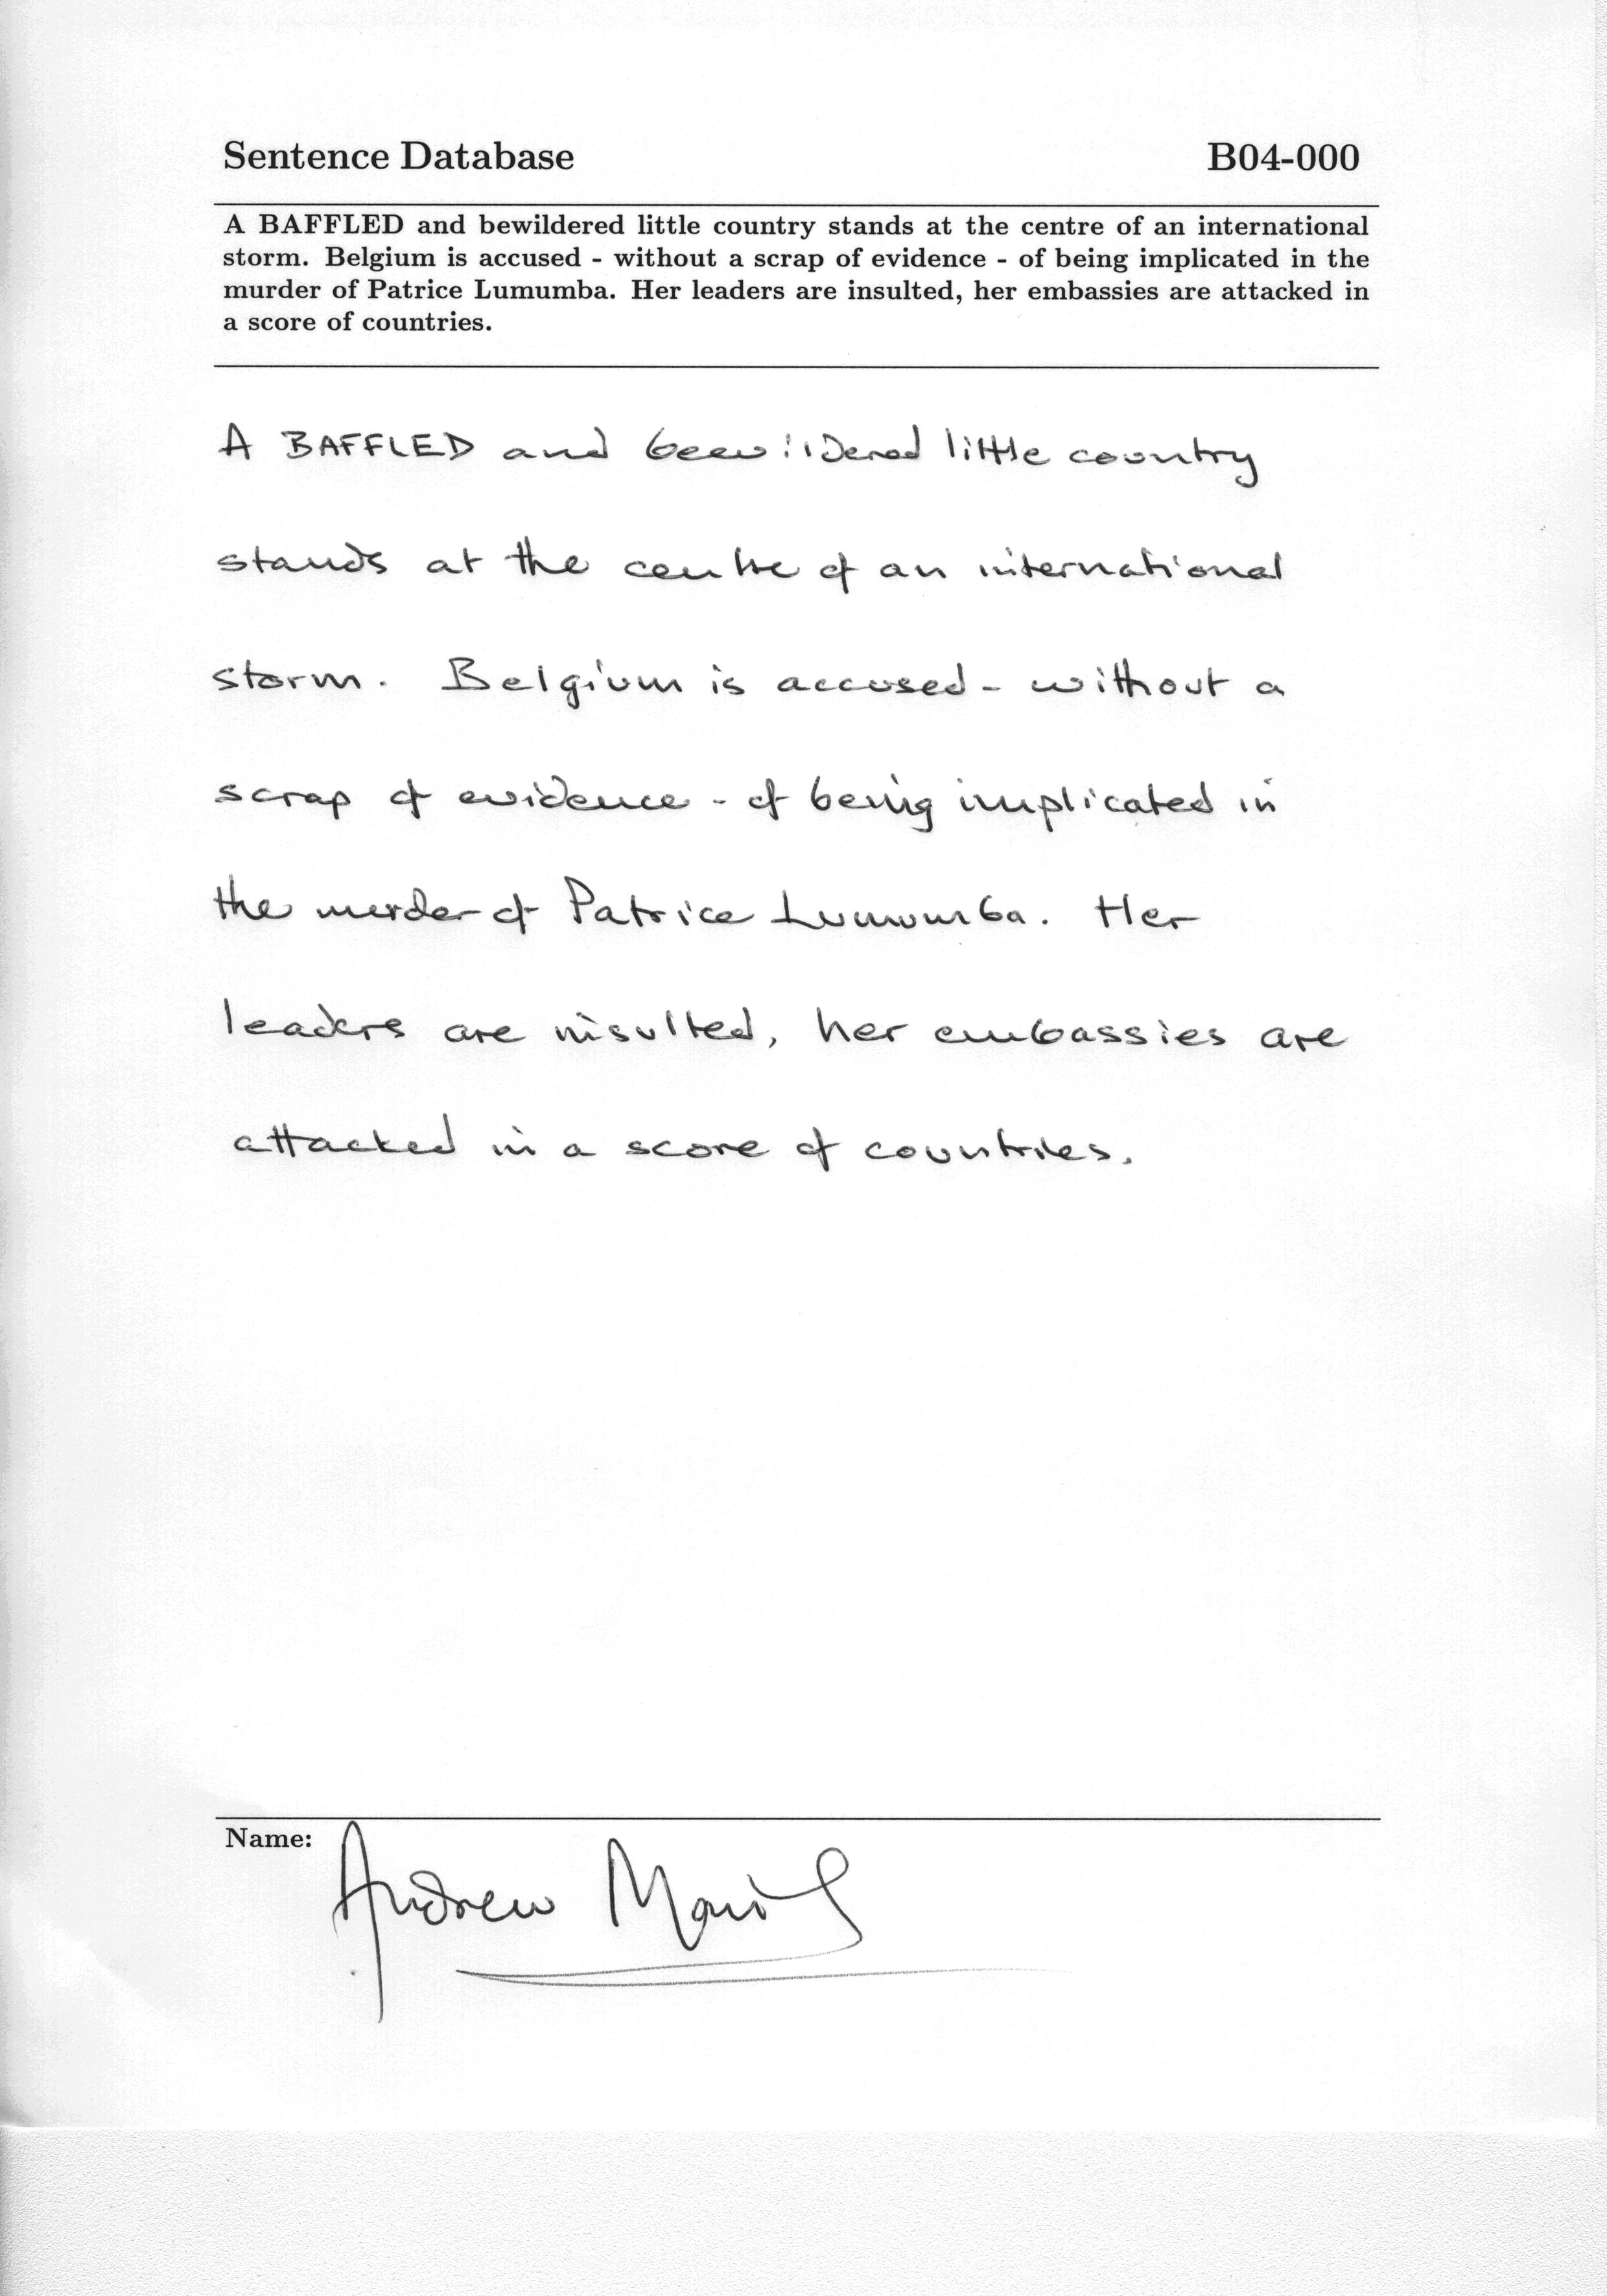 Sentence Database B04-000
A BAFFLED and bewildered little country stands at the centre of an international
storm. Belgium is accused - without a scrap of evidence - of being implicated in the
murder of Patrice Lumumba. Her leaders are insulted, her embassies are attacked in
a score of countries.
A BAFFLED and beewildered little country
stands at the centre of an international
storm. Belgium is accused - without a
scrap of evidence - of being implicated in
the murder of Patrice Lumumba. Her
leaders are insulted, her embassies are
attacked in a score of countries.
Name:
Andrew